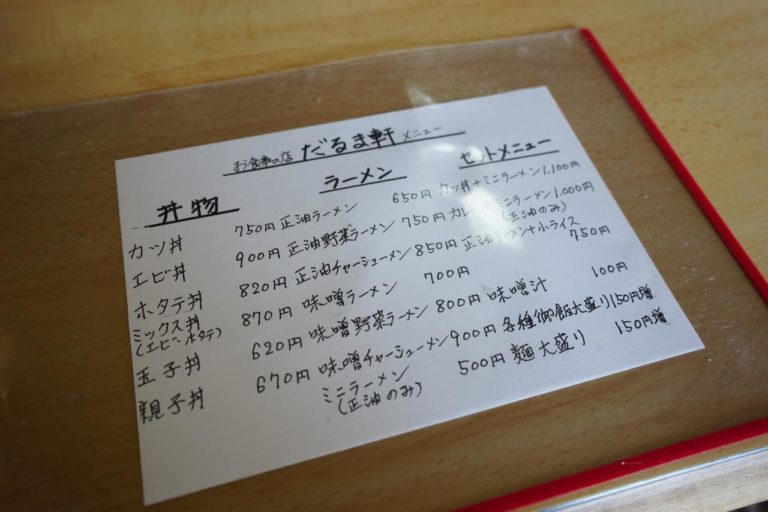 お食事の店 だるま軒 メニュー
丼物
カツ丼 750円
エビ丼 900円
ホタテ丼 820円
ミックス丼 870円
(エビ、ホタテ)
玉子丼 620円
親子丼 670円
ラーメン
正油ラーメン 650円
正油野菜ラーメン 750円
正油チャーシューメン 850円
味噌ラーメン 700円
味噌野菜ラーメン 800円
味噌チャーシューメン 900円
ミニラーメン 500円
(正油のみ)
セットメニュー
カツ丼+ミニラーメン 1,100円
カレー+ミニラーメン 1,000円
(正油のみ)
正油ラーメン+小ライス 750円
味噌汁 100円
各種御飯大盛り 150円増
麺大盛り 150円増